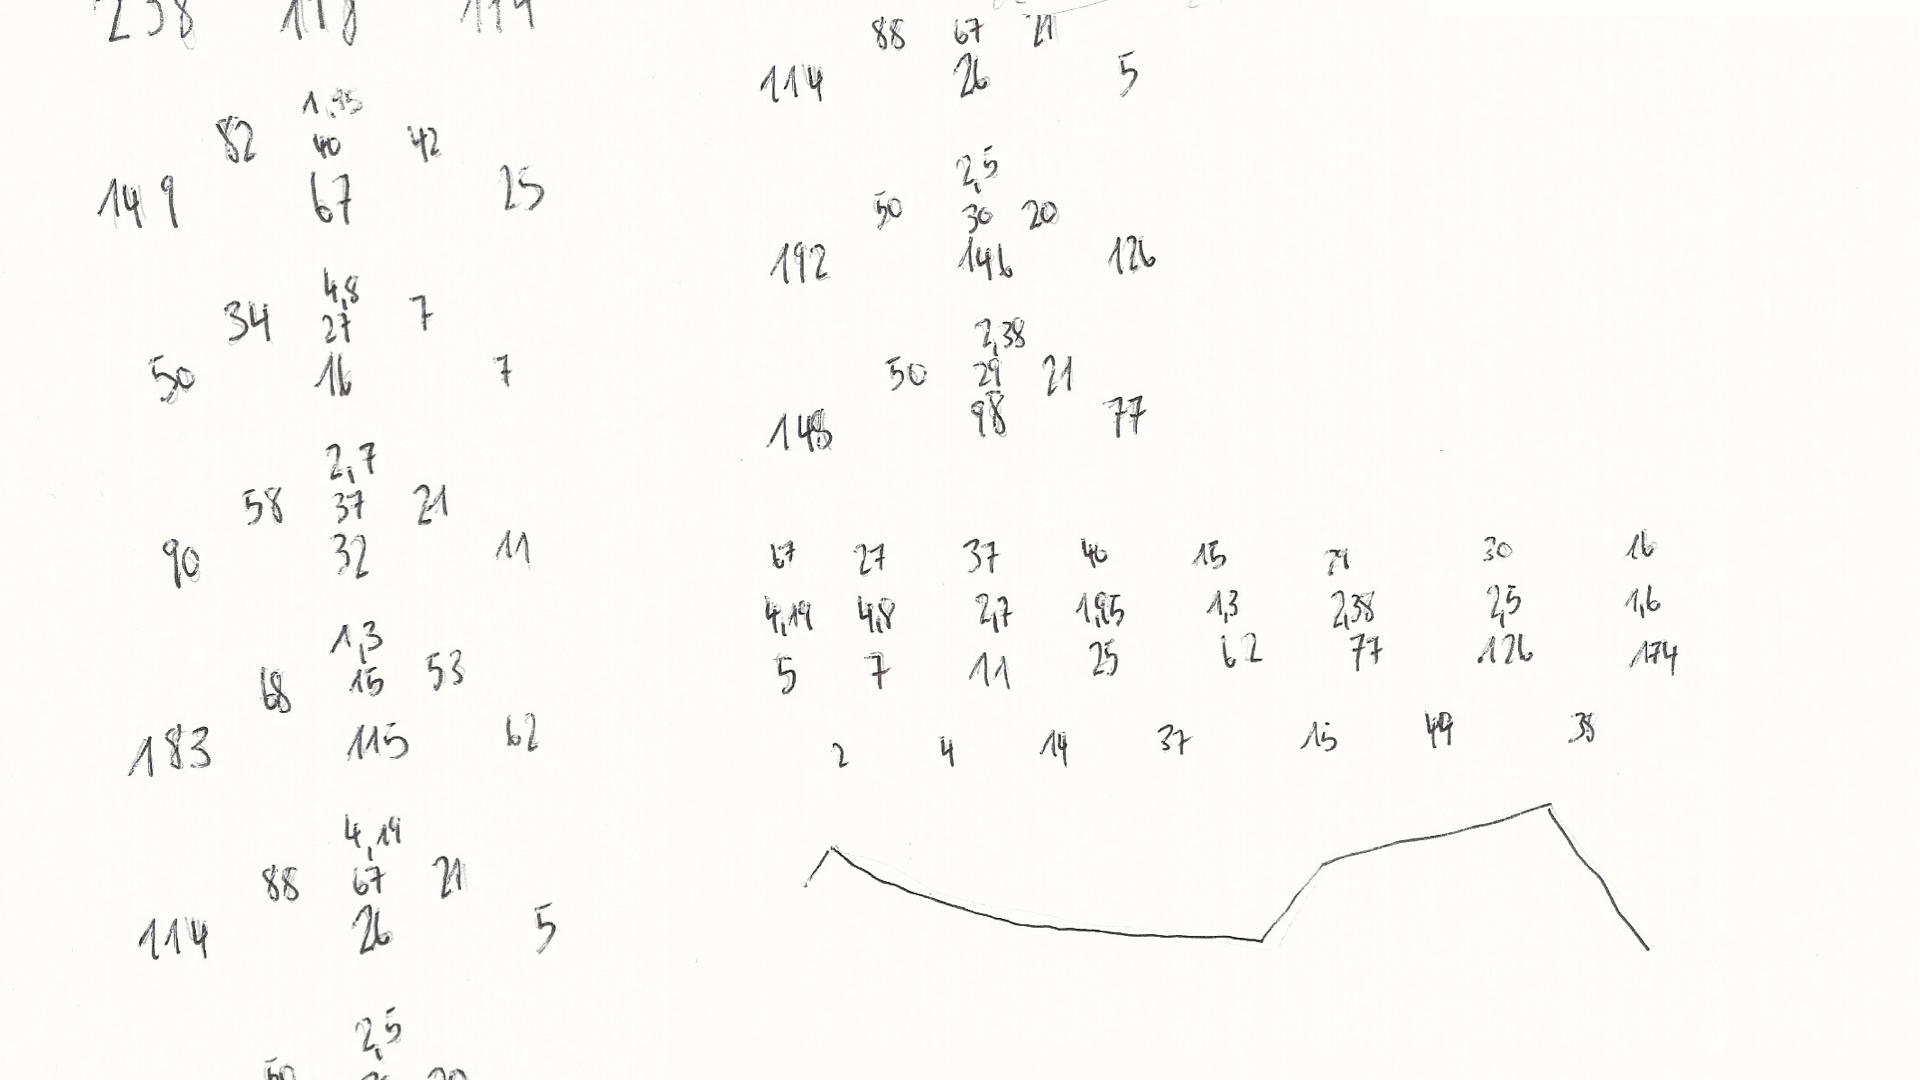 238 178 119
1,95
82 40 42
149 67 25
4,8
34 27 7
50 16 7
2,7
58 37 21
90 32 11
1,3
68 15 53
183 115 62
4,19
88 67 21
114 26 5
2,5
50 20
88 67 21
114 26 5
2,5
50 30 20
192 146 126
2,38
50 29 21
148 98 77
67 27 37 40 15 29 30 16
4,19 4,8 2,7 1,95 1,3 2,38 2,5 1,6
5 7 11 25 62 77 126 174
2 4 14 37 15 49 38